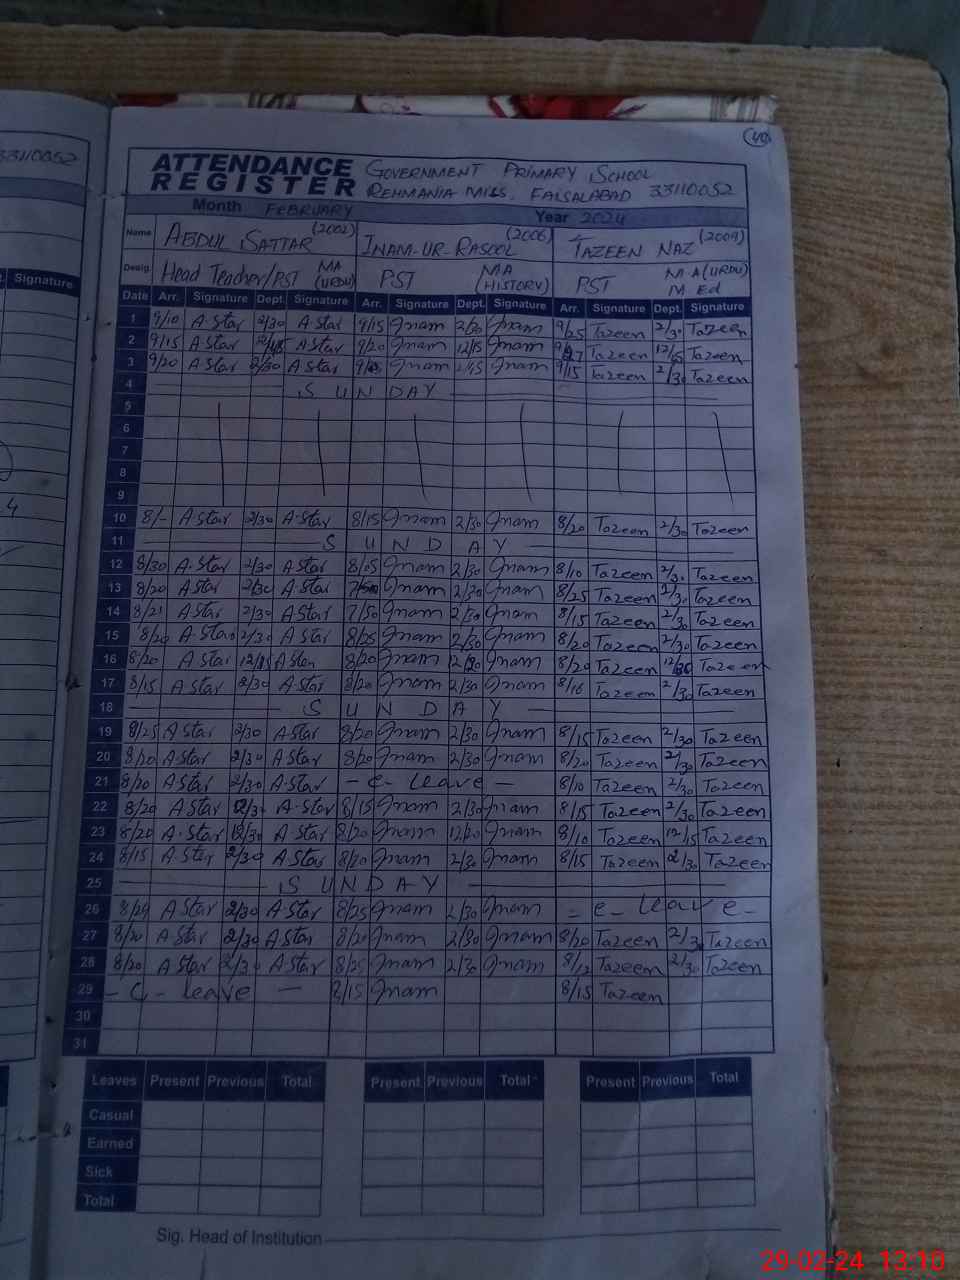 40
33110052
ATTENDANCE REGISTER GOVERNMENT PRIMARY SCHOOL
REHMANIA MILLS, FAISALABAD 33110052
Month FEBRUARY Year 2024
Name ABDUL SATTAR (2002) INAM-UR-RASOOL (2006) TAZEEN NAZ (2009)
Desig. Head Teacher/PST MA (URDU) PST MA (HISTORY) PST M.A (URDU) M Ed
Signature
Date Arr. Signature Dept. Signature Arr. Signature Dept. Signature Arr. Signature Dept. Signature
1 9/10 A-Star 2/30 A Star 9/15 Inam 2/30 Inam 9/25 Tazeen 2/30 Tazeen
2 9/15 A Star A Star 9/20 Inam 12/15 Inam Tazeen Tazeen
3 9/20 A Star 2/30 A Star Inam Inam 9/15 Tazeen 2/30 Tazeen
4 SUNDAY
5
6
7
8
9
10 8/- A Star 2/30 A-Star 8/15 Inam 2/30 Inam 8/20 Tazeen 2/30 Tazeen
11 SUNDAY
12 8/30 A-Star 2/30 A Star 8/05 Inam 2/30 Inam 8/10 Tazeen 2/30 Tazeen
13 8/20 A Star 2/30 A Star Inam 2/30 Inam 8/25 Tazeen 2/30 Tazeen
14 8/21 A Star 2/30 A Star 7/50 Inam 2/30 Inam 8/15 Tazeen 2/30 Tazeen
15 8/20 A-Star 2/30 A Star 8/25 Inam 2/30 Inam 8/20 Tazeen 2/30 Tazeen
16 8/20 A Star 12/15 A Star 8/20 Inam Inam 8/20 Tazeen Tazeen
17 8/15 A Star 2/30 A Star 8/20 Inam 2/30 Inam 8/16 Tazeen 2/30 Tazeen
18 SUNDAY
19 8/25 A Star 2/30 A Star 8/20 Inam 2/30 Inam 8/15 Tazeen 2/30 Tazeen
20 8/20 A Star 2/30 A Star 8/20 Inam 2/30 Inam 8/20 Tazeen 2/30 Tazeen
21 8/20 A Star 2/30 A-Star - e- leave - 8/10 Tazeen 2/30 Tazeen
22 8/20 A Star A-Star 8/15 Inam 2/30 Inam 8/15 Tazeen 2/30 Tazeen
23 8/20 A-Star A Star 8/20 Inam 12/20 Inam 8/10 Tazeen 12/15 Tazeen
24 8/15 A Star 2/30 A Star 8/20 Inam 2/30 Inam 8/15 Tazeen 2/30 Tazeen
25 SUNDAY
26 8/20 A Star 2/30 A-Star 8/25 Inam 2/30 Inam - e- leave -
27 8/20 A Star 2/30 A Star 8/20 Inam 2/30 Inam 8/20 Tazeen 2/30 Tazeen
28 8/20 A Star 2/30 A Star 8/25 Inam 2/30 Inam 8/12 Tazeen 2/30 Tazeen
29 - C- leave - 8/15 Inam 8/15 Tazeen
30
31
Leaves Present Previous Total Present Previous Total Present Previous Total
Casual
Earned
Sick
Total
Sig. Head of Institution
29-02-24 13:10